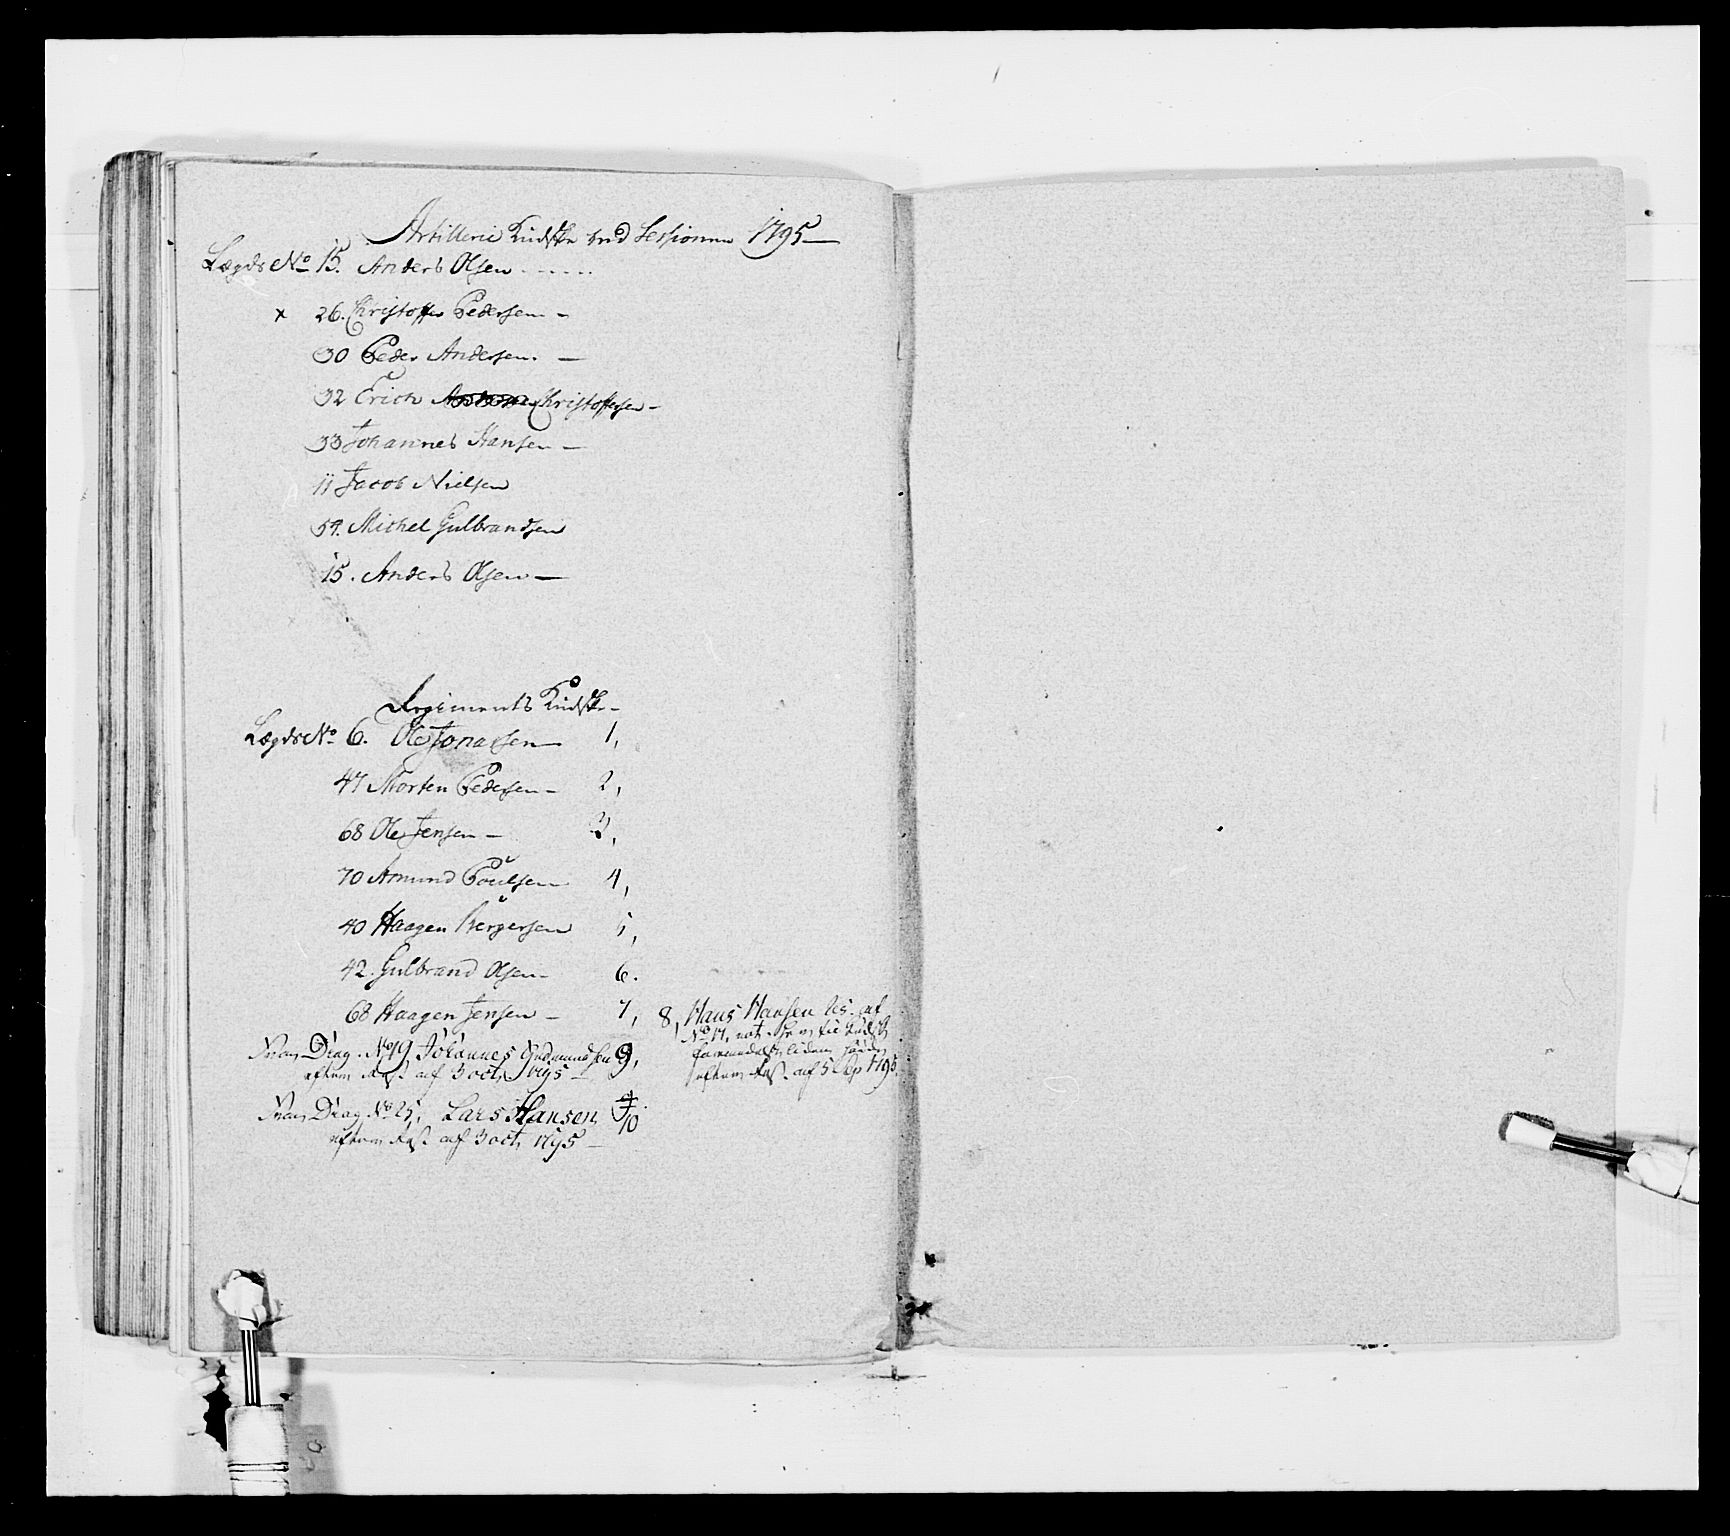 Artillerie Kudske ved Sessionen 1795
Lægds No 15. Anders Olsen
x 26. Christoffer Pedersen -
30 Peder Andersen. -
32 Erich Christoffersen -
33 Johannes Hansen -
11 Jacob Nielsen
54. Michel Gulbrandsen
15. Anders Olsen -
Regiments Kudske -
Lægds No 6. Ole Jonassen 1,
47 Morten Pedersen - 2,
68 Ole Jensen - 3,
70 Amund Poulsen 4,
40 Haagen Børgersen 5,
42. Gulbrand Olsen - 6.
68 Haagen Jensen - 7,
8, Hans Hansen Res. af
No 17,
efter Res. af 5 Sep 1795.
Drag. No 19 Johannes Gudmundsen 9,
efter Res. af 3 oct, 1795 -
Drag No 25, Lars Hansen 10
efter Res. af 3 oct, 1795 -